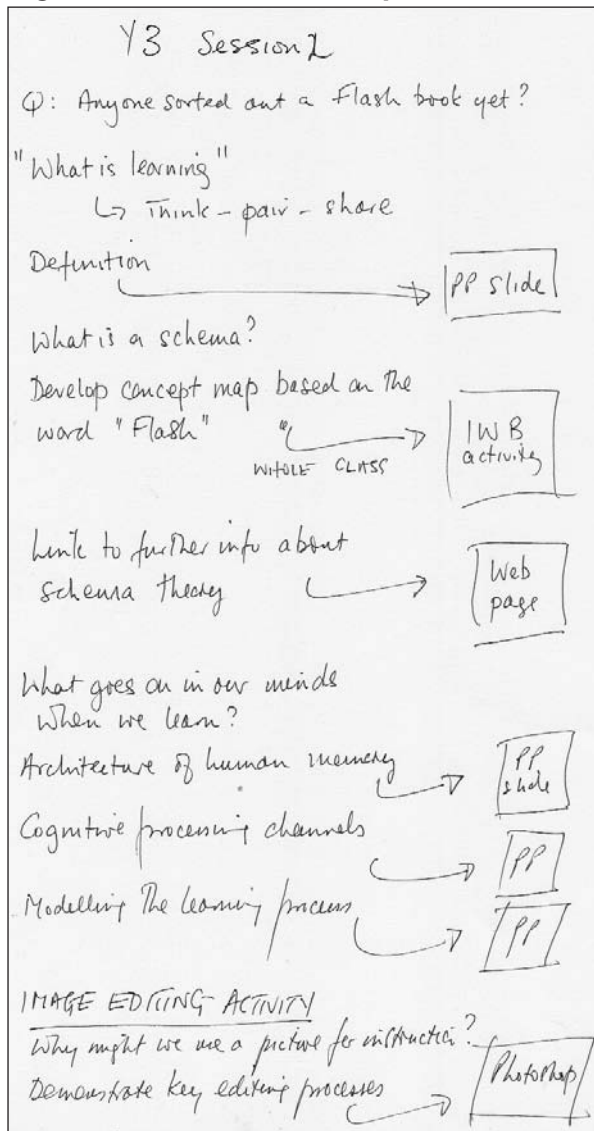 Y3 Session 2
Q: Anyone sorted out a Flash book yet?
"What is learning"
↳ Think - pair - share
Definition → PP slide
What is a schema?
Develop concept map based on the
word "Flash" → IWB
WHOLE CLASS activity
Link to further info about
schema theory → Web
page
What goes on in our minds
when we learn?
Architecture of human memory → PP
slide
Cognitive processing channels → PP
Modelling the learning process → PP
IMAGE EDITING ACTIVITY
Why might we use a picture for instruction?
Demonstrate key editing processes → Photoshop